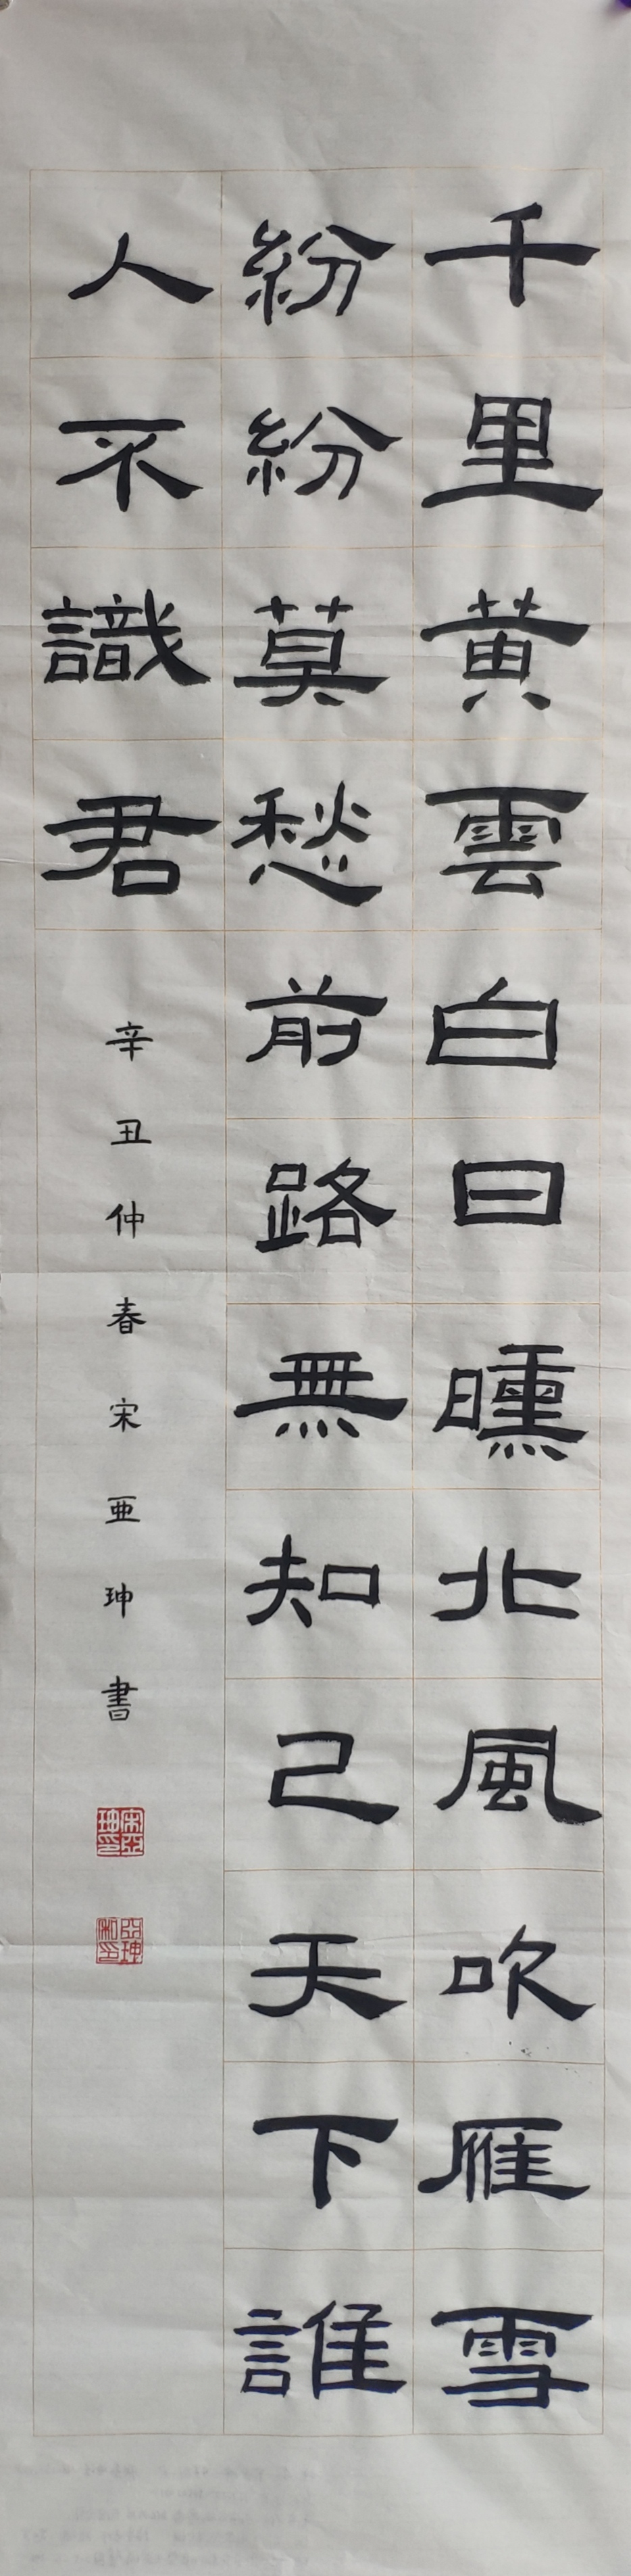 千里黄雲白日曛北風吹雁雪
紛紛莫愁前路無知己天下誰
人不識君
辛丑仲春宋亜珅書
宋亞珅印